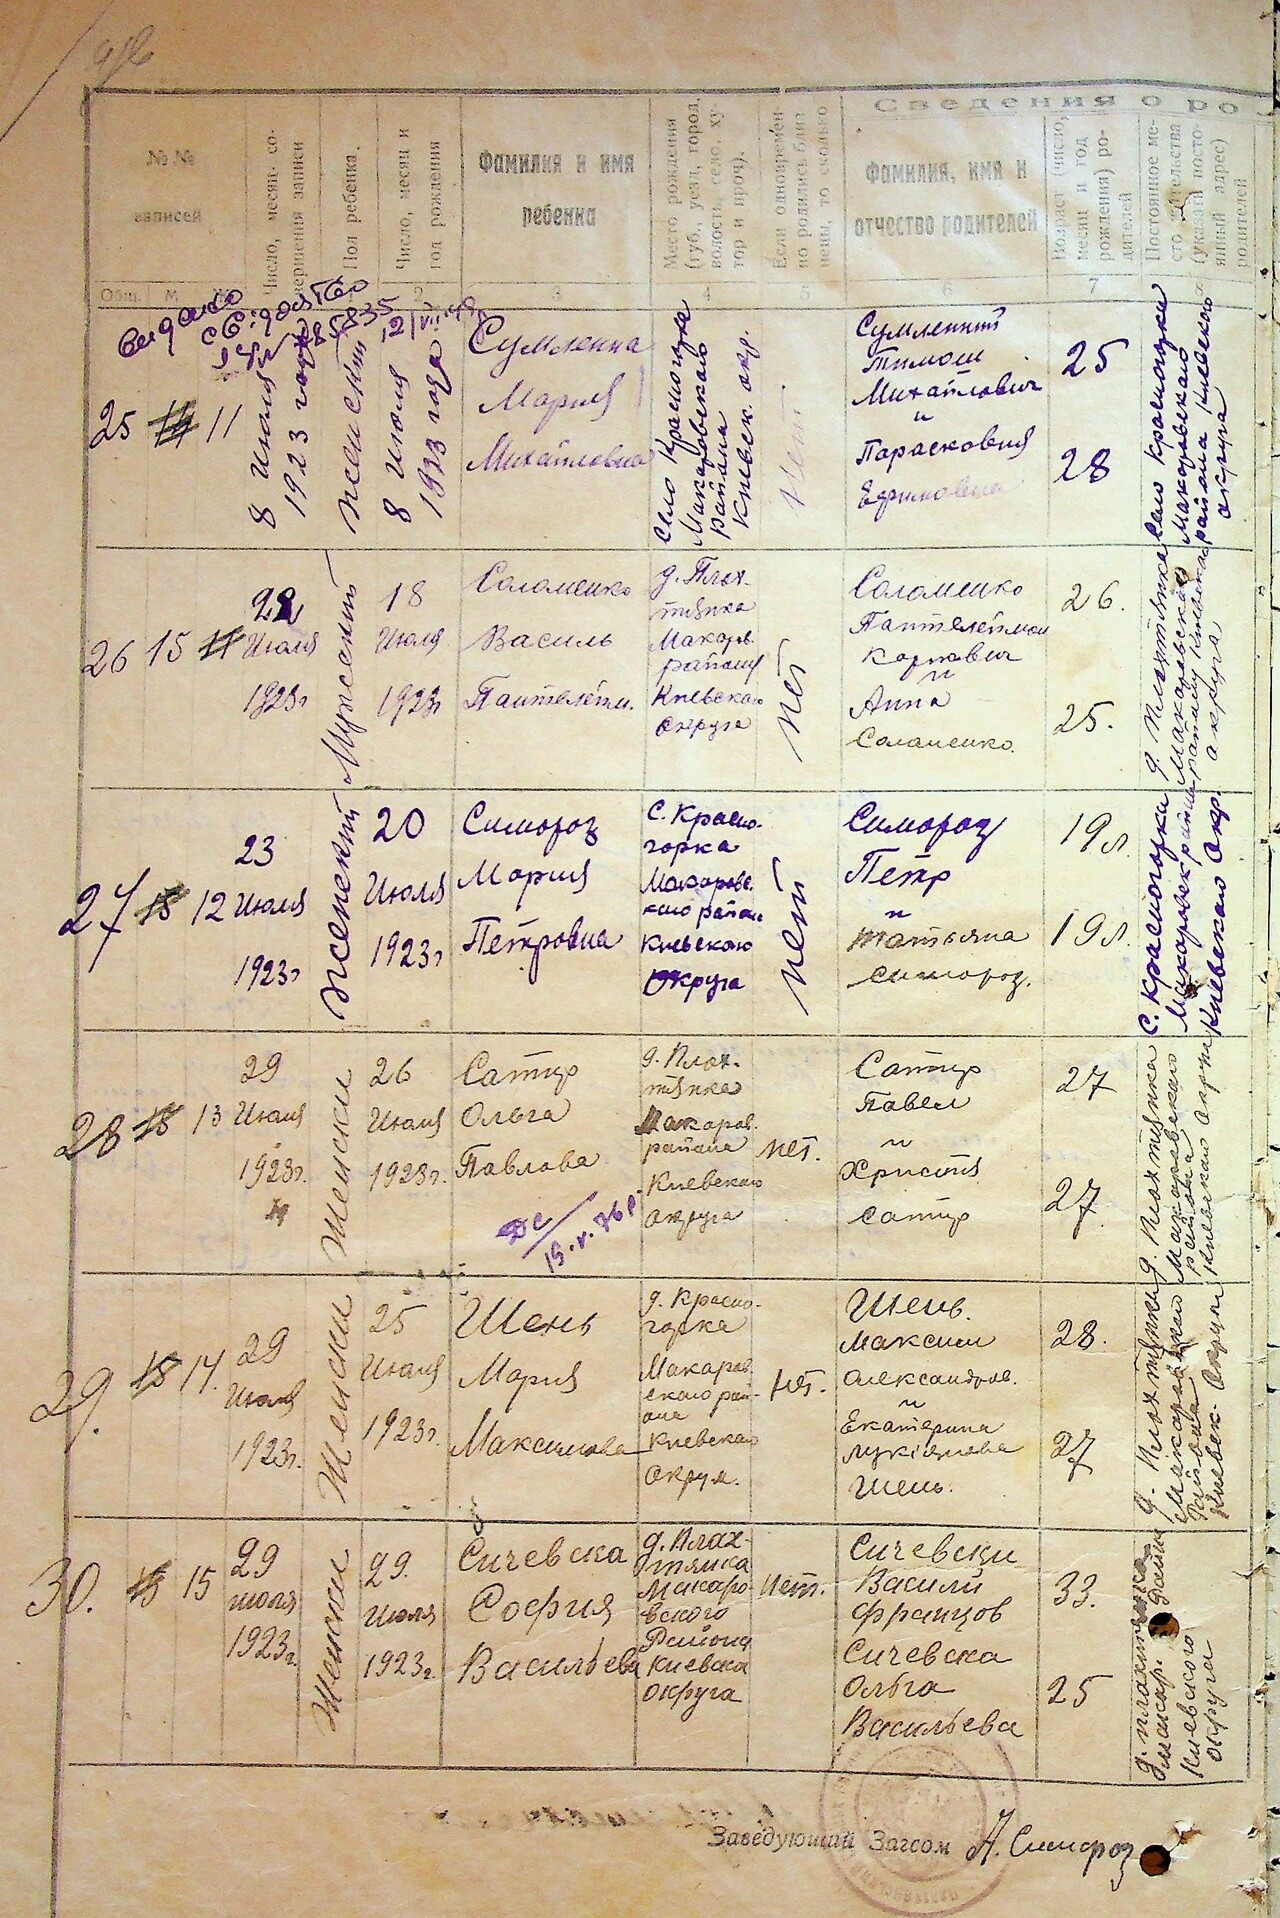 Сведения о ро
№ №
записей
Число, месяц со-
вершения записи
Пол ребенка.
Число, месяц и
год рождения
Фамилия и имя
ребенка
Место рождения
(губ., уезд, город,
волость, село, ху-
тор и проч).
Если одновремен-
но родились близ
нецы, то сколько
Фамилия, имя и
отчество родителей
Возраст (число,
месяц и год
рождения) ро-
дителей
Постоянное ме-
сто жительства
(указать посто-
янный адрес)
родителей
Общ. М
2
4
5
6
7
25
11
8 Июля
1923 года
Женский
8 Июля
1923 года
Сумленна
Мария
Михайловна
Село Красногорка
Макаровского
района
Киевск. окр.
Нет.
Сумленный
Тимош
Михайлович
и
Парасковия
Ефимовна
25
28
Село Красногорка
Макаровского
района Киевского
округа
26
15
Июля
1923г
Мужеский
18
Июля
1923г
Соломенко
Василь
Пантелейм.
д. Плах-
тянка
Макаров.
района
Киевского
округа
Нет
Соломенко
Пантелеймон
Карпович
и
Анна
Соломенко.
26.
25.
д. Плахтянка
Макаровского
округа
27
12
23
Июля
1923г
Женский
20
Июля
1923г
Симороз
Мария
Петровна
С. Красно-
горка
Макаровс.
кого район
Киевского
Округа
Нет
Симороз
Петр
и
Татьяна
Симороз.
19л.
19л.
С. Красногорка
Макаровск. района
Киевского Окр.
28
13
29
Июля
1923г.
Женски
26
Июля
1923г.
Сатир
Ольга
Павлова
15.V.76р.
д. Плах-
тянка
Макаров.
района
Киевского
округа
нет.
Сатир
Павел
и
Христя
Сатир
27
27
д. Плахтянка
Макаровского
района
Киевского Округа
29.
14.
29
Июля
1923г.
Женски
25
Июля
1923г.
Шень
Мария
Максимова
д. Красно-
горка
Макаров
ского рай-
она
Киевского
Округ.
нет.
Шень.
Максим
Александров.
и
Екатерина
Лукіянова
Шень.
28.
27
д. Плахтянка
Макаровского
Района
Киевск. Округа
30.
15
29
июля
1923г.
Женски
29.
Июля
1923г.
Сичевска
София
Васильева
д. Плах-
тянка
Макаро-
вского
Района
Киевска
округа
Нет.
Сичевски
Васили
Францов
Сичевска
Ольга
Васильева
33.
25
д. плахтянка
Макар. Района
Киевского
округа
Заведующий Загсом А. Симороз